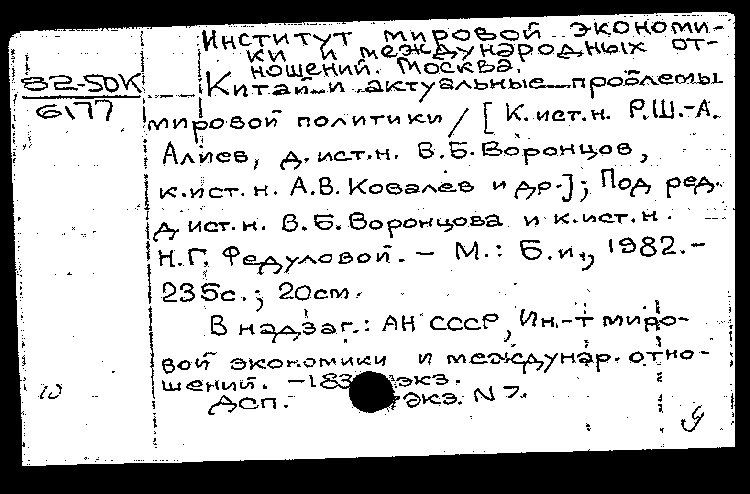 Институт мировой экономи-
ки и международных от-
ношений. Москва.
82-50К
6177
Китай и актуальные проблемы
мировой политики / [К.ист.н. Р.Ш.-А.
Алиев, д.ист.н. В.Б.Воронцов,
к.ист.н. А.В.Ковалев и др.]; Под ред.
д.ист.н. В.Б.Воронцова и к.ист.н.
Н.Г. Федуловой. – М.: Б.и., 1982.–
235с.; 20см.
В надзаг.: АН СССР, Ин-т миро-
вой экономики и междунар. отно-
шений. – 183 экз.
Дсп. экз. N 7.